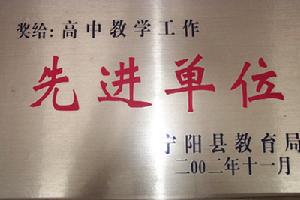 奖给:高中教学工作
先进单位
宁阳县教育局
二〇〇二年十一月